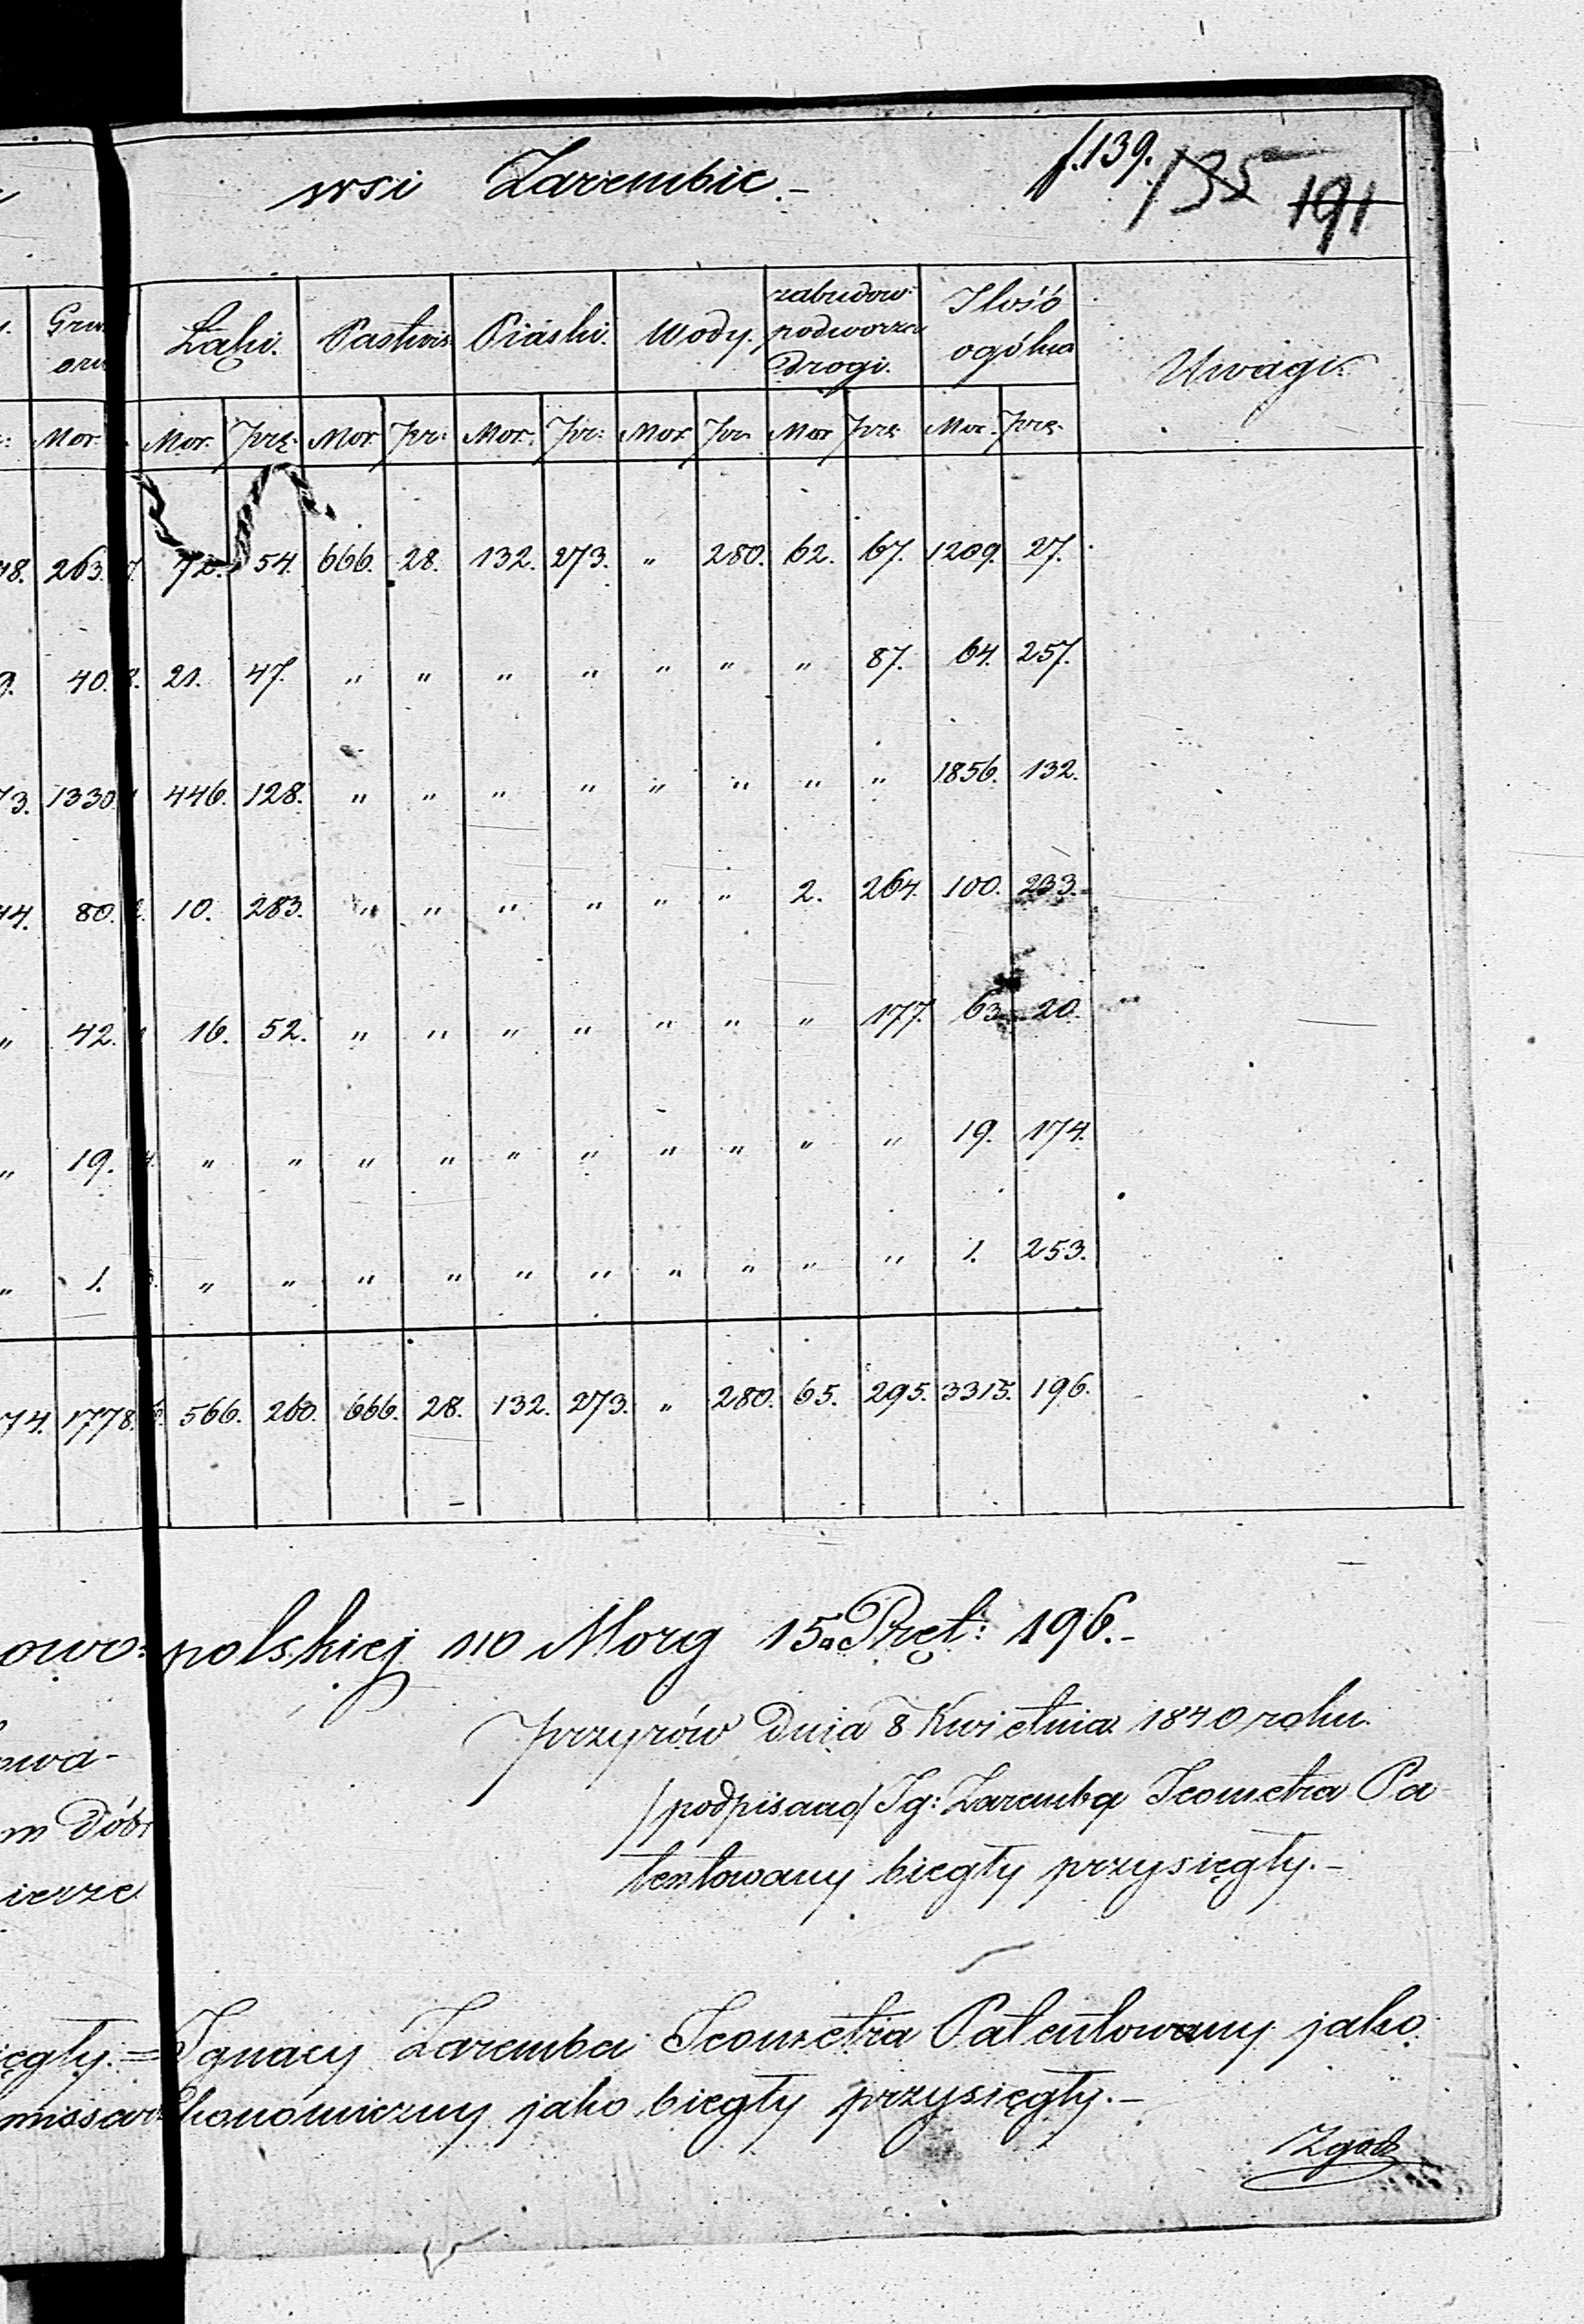 wsi Zarembic.-
f. 139. 135 191
Łąki. Pastwis. Piaski. Wody. zabudow: podworza Drogi. Ilość ogólna Uwagi.
Mor. Mor. Prę. Mor. Pr: Mor. Pr: Mor. Pr. Mor Prę Mor. Prę.
18. 263. 72. 54. 666. 28. 132. 273. " 280. 62. 67. 1209. 27.
9. 40. 21. 47. " " " " " " " 87. 64. 257.
73. 1330. 446. 128. " " " " " " " " 1856. 132.
44. 80. 10. 283. " " " " " " 2. 264. 100. 233.
" 42. 16. 52. " " " " " " " 177. 63. 20.
" 19. " " " " " " " " " " 19. 174.
" 1. " " " " " " " " " " 1. 253.
74. 1778. 566. 260. 666. 28. 132. 273. " 280. 65. 295. 3315. 196.
owo: polskiej 110 Morg 15. Pręt: 196.-
Przyrów Dnia 8 Kwietnia 1840 roku.
owa-
/podpisano/ Ig: Zaremba Jeometra Pa
m Dóbr
tentowany biegły przysięgły.-
ierze
ięgły. = Ignacy Zaremba Jeometra Patentowany jako
missarz Ekonomiczny jako biegły przysięgły.-
Zgodz